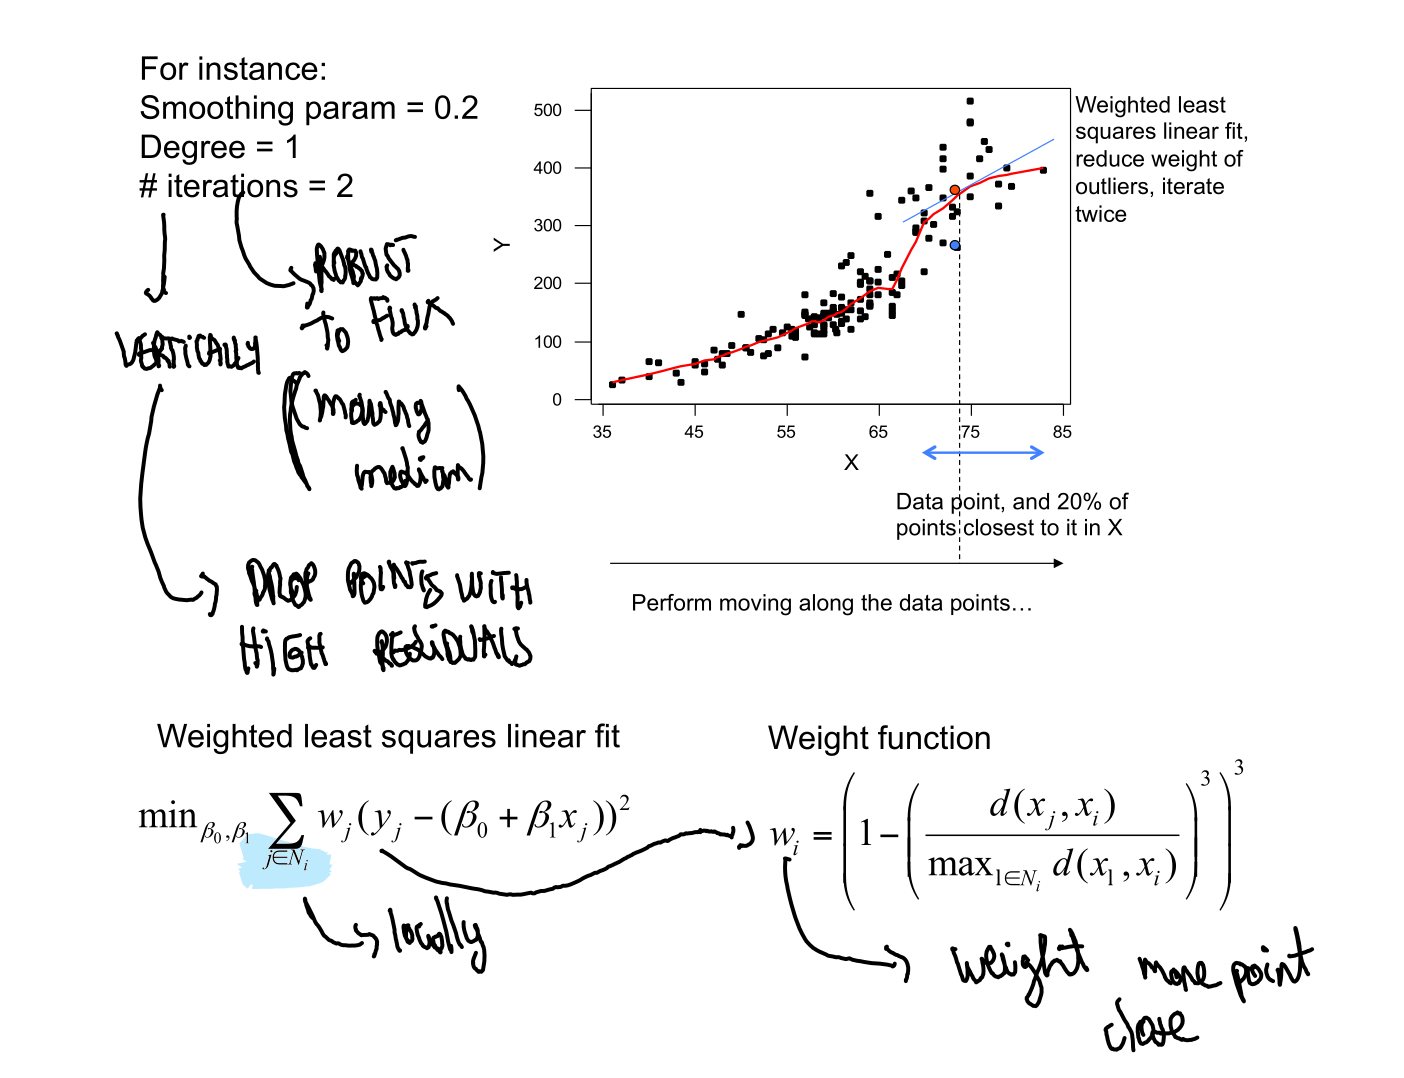 For instance:
Smoothing param = 0.2
Degree = 1
# iterations = 2
VERTICALLY
ROBUST
TO FLUX
(moving
median)
DROP POINTS WITH
HIGH RESIDUALS
500
400
300
200
100
0
Y
35 45 55 65 75 85
X
Weighted least
squares linear fit,
reduce weight of
outliers, iterate
twice
Data point, and 20% of
points closest to it in X
Perform moving along the data points…
Weighted least squares linear fit
min β₀,β₁ ∑ j∈Nᵢ wⱼ(yⱼ −(β₀ + β₁xⱼ))²
locally
Weight function
wᵢ = (1−(d(xⱼ,xᵢ) / max l∈Nᵢ d(xₗ,xᵢ))³)³
weight more point
close